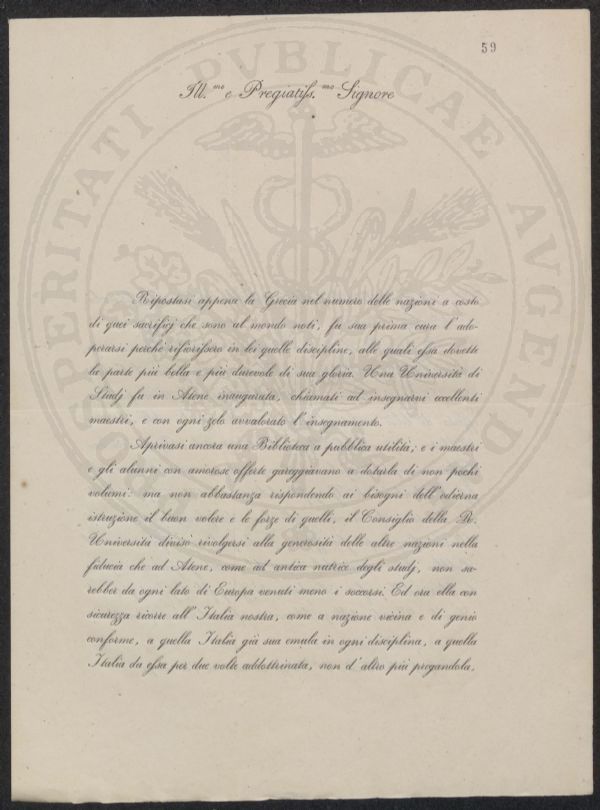 59
Ill.mo e Pregiatiss.mo Signore
Ripostasi appena la Grecia nel numero delle nazioni a costo
di quei sacrificj che sono al mondo noti, fu sua prima cura l'ado-
perarsi perchè rifiorissero in lei quelle discipline, alle quali essa dovette
la parte più bella e più durevole di sua gloria. Una Università di
Studj fu in Atene inaugurata, chiamati ad insegnarvi eccellenti
maestri, e con ogni zelo avvalorato l'insegnamento.
Aprivasi ancora una Biblioteca a pubblica utilità; e i maestri
e gli alunni con amorose offerte gareggiavano a dotarla di non pochi
volumi: ma non abbastanza rispondendo ai bisogni dell'odierna
istruzione il buon volere e le forze di quelli, il Consiglio della R.
Università divisò rivolgersi alla generosità delle altre nazioni nella
fiducia che ad Atene, come ad antica nutrice degli studj, non sa-
rebber da ogni lato di Europa venuti meno i soccorsi. Ed ora ella con
sicurezza ricorre all'Italia nostra, come a nazione vicina e di genio
conforme, a quella Italia già sua emula in ogni disciplina, a quella
Italia da essa per due volte addottrinata, non d'altro più pregandola,
PROSPERITATI PVBLICAE AVGENDAE